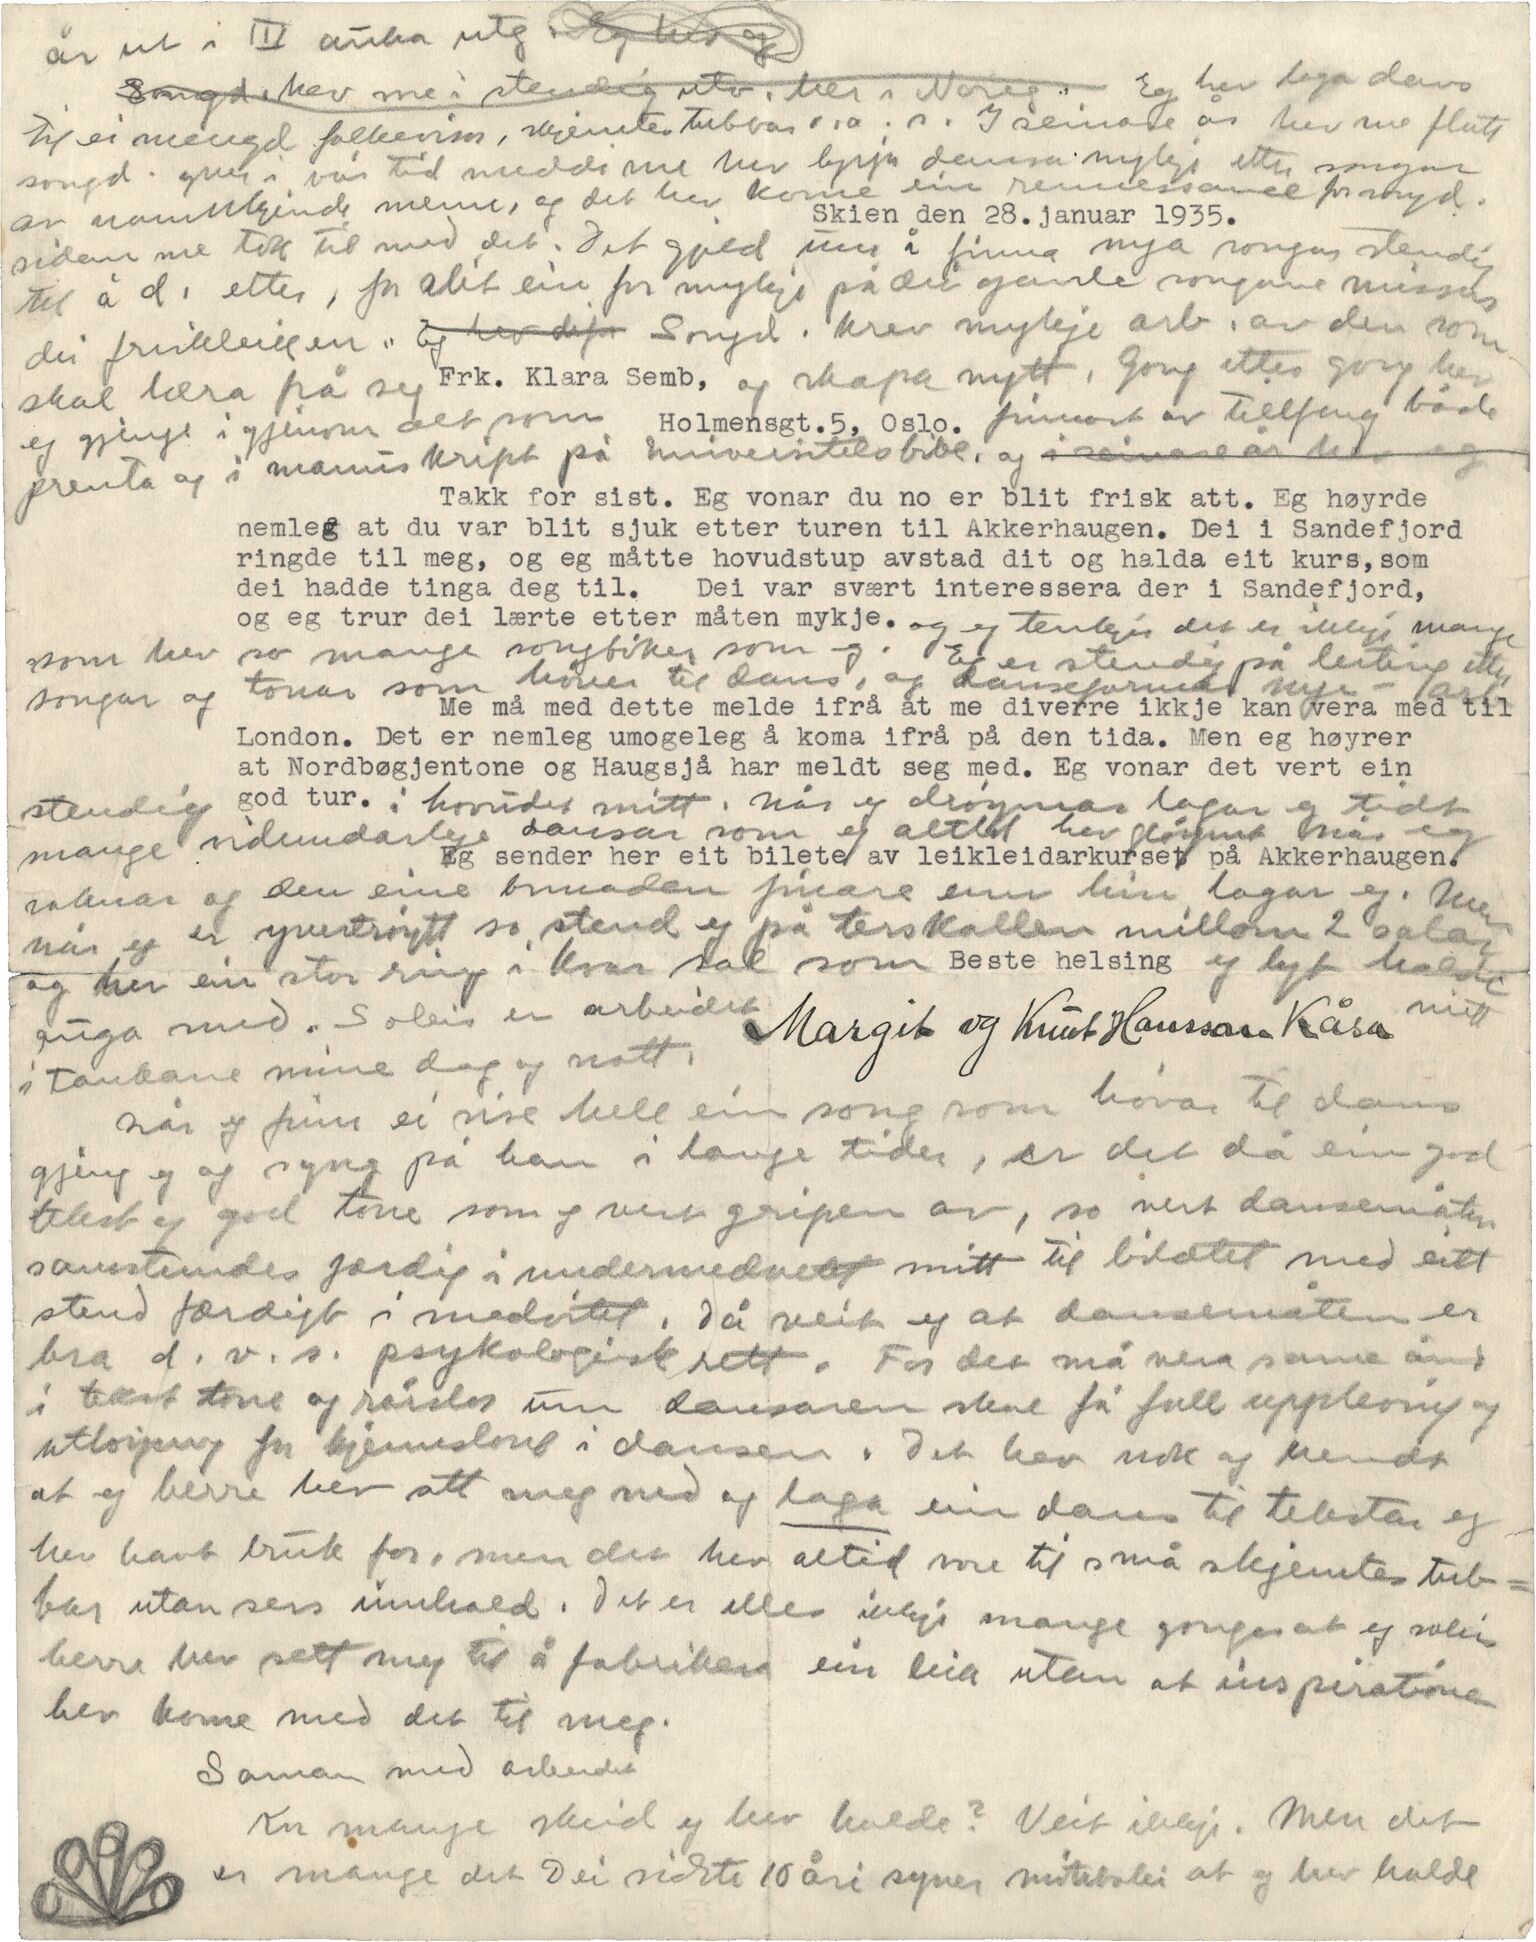 år ut i III auka utg. Eg hev og
Songd. hev me i stendig utv. her i Noreg. Eg hev laga dans
til ei mengd folkevisor, skjemtestubbar o.a. s. I seinare år hev me flutt
songd. yver i vår tid meddi me hev byrja dansa mykje etter songar
av namnkjende menn, og det hev kome ein rennessance for songd.
Skien den 28.januar 1935.
sidan me tok til med det. Det gjeld um å finna nya songar stendig
til å d. etter, for slit ein for mykje på dei gamle songane missar
dei friskleiken. Eg hev difor Songd. krev mykje arb. av den som
skal læra frå seg og skapa nytt. Gong etter gong hev
Frk. Klara Semb,
eg gjenge i gjenom alt som finnast av tilfeng både
Holmensgt.5, Oslo.
prenta og i manuskript på Universitetsbibl. og i seinare år hev eg
Takk for sist. Eg vonar du no er blit frisk att. Eg høyrde
nemleg at du var blit sjuk etter turen til Akkerhaugen. Dei i Sandefjord
ringde til meg, og eg måtte hovudstup avstad dit og halda eit kurs,som
dei hadde tinga deg til. Dei var svært interessera der i Sandefjord,
og eg trur dei lærte etter måten mykje.
og eg tenkjer det er ikkje mange
som hev so mange songbøker som eg. Eg er stendig på leiting etter
songar og tonar som høver til dans, og danseformer nye - arb.
Me må med dette melde ifrå åt me diverre ikkje kan vera med til
London. Det er nemleg umogeleg å koma ifrå på den tida. Men eg høyrer
at Nordbøgjentone og Haugsjå har meldt seg med. Eg vonar det vert ein
god tur.
stendig i hovudet mitt. Når eg drøymar lagar eg tidt
mange vidundarlege dansar som eg alltid hev gløymt når eg
Eg sender her eit bilete av leikleidarkurset på Akkerhaugen.
vaknar og den eine bunaden finare enn hin lagar eg. Men
når eg er yvertrøytt so stend eg på terskallen millom 2 salar
og hev ein stor ring i kvar sal som eg lyt halde
Beste helsing
auga med. Soleis er arbeidet mitt
Margit og Knut Hansson Kåsa
i tankane mine dag og natt.
Når eg finn ei vise hell ein song som høvar til dans
gjeng eg og syng på han i lange tider, er det då ein god
tekst og god tone som eg vert gripen av, so vert dansemåten
samstundes færdig i undermedvetet mitt til bilætet med eitt
stend færdigt i medvitet. Då veit eg at dansemåten er
bra d.v.s. psykologisk rett. For det må vera same ånd
i tekst tone og rørsler um dansaren skal få full uppleving og
utløysing for kjenslone i dansen. Det hev nok og hendt
at eg berre hev sett meg ned og laga ein dans til tekstar eg
hev havt bruk for, men det hev altid vore til små skjemtestub=
bar utan sers innhald. Det er elles ikkje mange gonger at eg soleis
berre hev sett meg til å fabrikera ein leik utan at inspirationen
hev kome med det til meg.
Saman med arbeidet
Kor mange skeid eg hev halde? Veit ikkje. Men det
er mange det Dei sidste 10 åri syner møteboki at eg hev halde